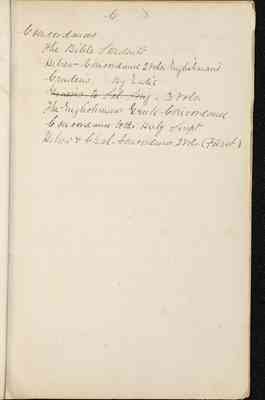 C
Concordances
The Bible Students
Hebrew Concordance 2 Vols Englishman's
Crudens
3 Vols
The Englishman's Greek Concordance
Concordance to the Holy Script
Hebrew & Chal. Concordance 2 Vols (Fürst)